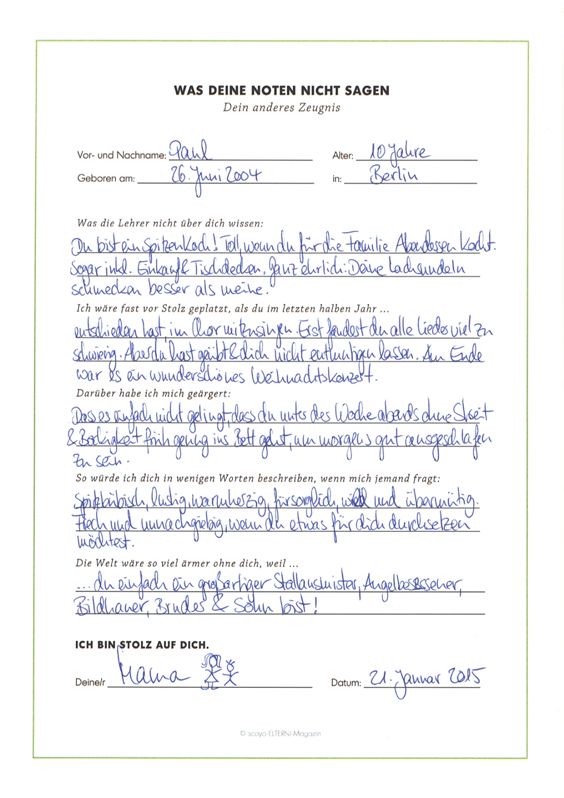 WAS DEINE NOTEN NICHT SAGEN
Dein anderes Zeugnis
Vor- und Nachname: Paul Alter: 10 Jahre
Geboren am: 26. Juni 2004 in: Berlin
Was die Lehrer nicht über dich wissen:
Du bist ein Spitzenkoch! Toll, wenn du für die Familie Abendessen kochst.
Sogar inkl. Einkauf & Tischdecken. Ganz ehrlich: Deine Lachsnudeln
schmecken besser als meine.
Ich wäre fast vor Stolz geplatzt, als du im letzten halben Jahr ...
entschieden hast, im Chor mitzusingen. Erst fandest du alle Lieder viel zu
schwierig. Aber du hast geübt & dich nicht entmutigen lassen. Am Ende
war es ein wunderschönes Weihnachtskonzert.
Darüber habe ich mich geärgert:
Dass es einfach nicht gelingt, dass du unter der Woche abends ohne Streit
& Bockigkeit früh genug ins Bett gehst, um morgens gut ausgeschlafen
zu sein.
So würde ich dich in wenigen Worten beschreiben, wenn mich jemand fragt:
Spitzbübisch, lustig, warmherzig, fürsorglich, wild und übermütig.
Frech und unnachgiebig, wenn du etwas für dich durchsetzen
möchtest.
Die Welt wäre so viel ärmer ohne dich, weil ...
... du einfach ein großartiger Stallausmister, Angelbesessener,
Bildhauer, Bruder & Sohn bist!
ICH BIN STOLZ AUF DICH.
Deine/r Mama Datum: 21. Januar 2015
© scoyo-ELTERN!-Magazin